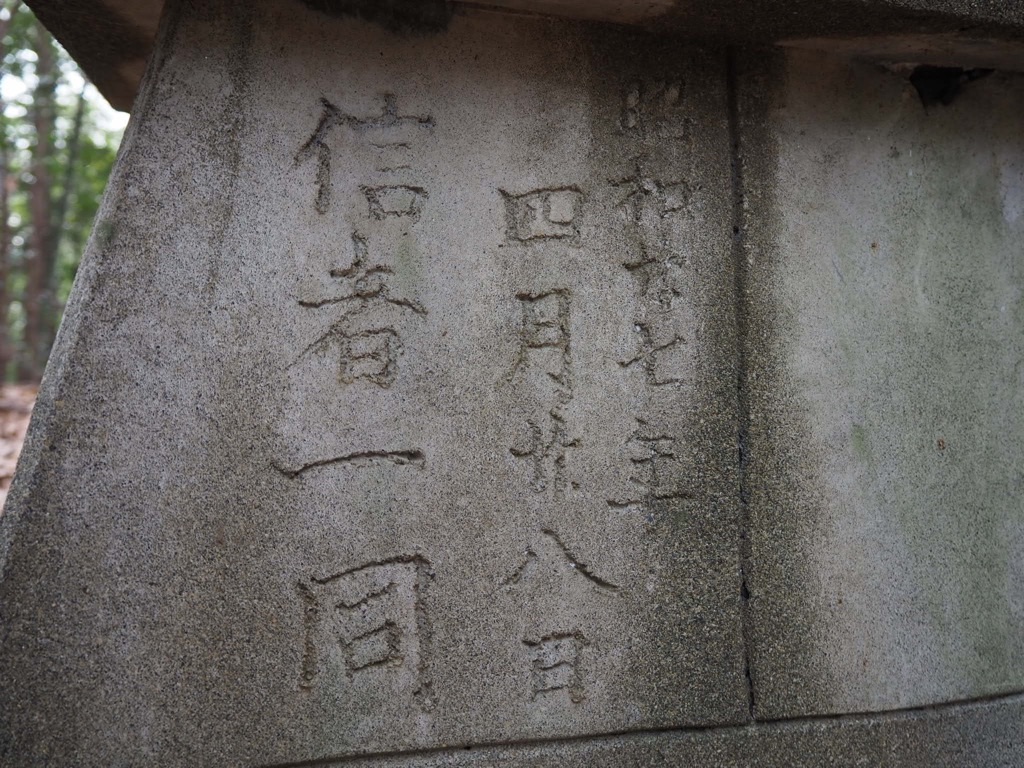 昭和七年
四月廿八日
信者一同